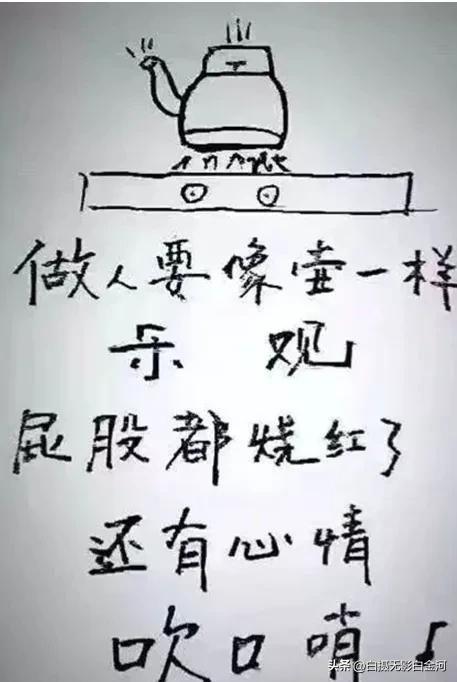 做人要像壶一样
乐 观
屁股都烧红了
还有心情
吹口哨♪
头条 @白极无影白金河